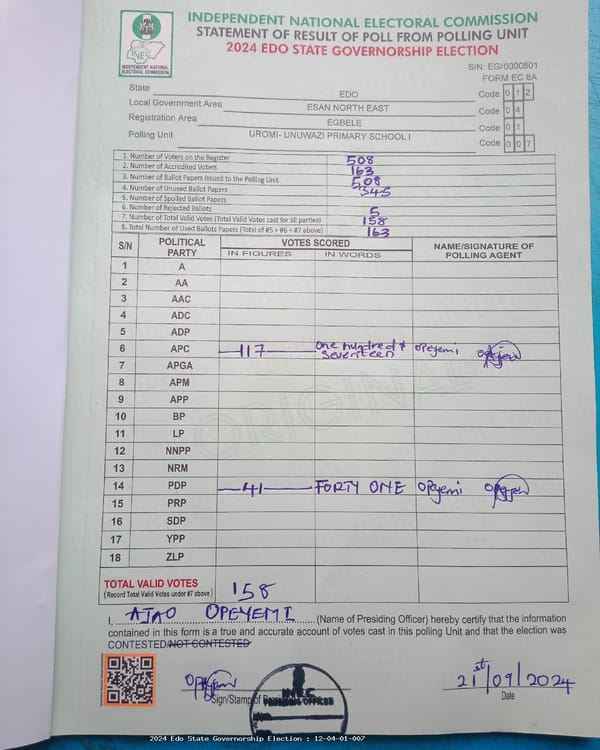 INDEPENDENT NATIONAL ELECTORAL COMMISSION
STATEMENT OF RESULT OF POLL FROM POLLING UNIT
2024 EDO STATE GOVERNORSHIP ELECTION
INEC
INDEPENDENT NATIONAL
ELECTORAL COMMISSION
S/N: EG/0000601
FORM EC 8A
State EDO Code 0 1 2
Local Government Area ESAN NORTH EAST Code 0 4
Registration Area EGBELE Code 0 1
Polling Unit UROMI- UNUWAZI PRIMARY SCHOOL I Code 0 0 7
1. Number of Voters on the Register 508
2. Number of Accredited Voters 163
3. Number of Ballot Papers Issued to the Polling Unit 508
4. Number of Unused Ballot Papers 345
5. Number of Spoiled Ballot Papers
6. Number of Rejected Ballots 5
7. Number of Total Valid Votes (Total Valid Votes cast for all parties) 158
8. Total Number of Used Ballots Papers (Total of #5 + #6 + #7 above) 163
S/N POLITICAL PARTY VOTES SCORED NAME/SIGNATURE OF POLLING AGENT
IN FIGURES IN WORDS
1 A
2 AA
3 AAC
4 ADC
5 ADP
6 APC 117 One hundred & seventeen opeyemi
7 APGA
8 APM
9 APP
10 BP
11 LP
12 NNPP
13 NRM
14 PDP 41 FORTY ONE Opeyemi
15 PRP
16 SDP
17 YPP
18 ZLP
ORIGINAL
TOTAL VALID VOTES 158
(Record Total Valid Votes under #7 above)
I, AJAO OPEYEMI (Name of Presiding Officer) hereby certify that the information
contained in this form is a true and accurate account of votes cast in this polling Unit and that the election was
CONTESTED/NOT CONTESTED
Sign/Stamp of
INEC
PRESIDING OFFICER
21st/09/2024
Date
2024 Edo State Governorship Election : 12-04-01-007